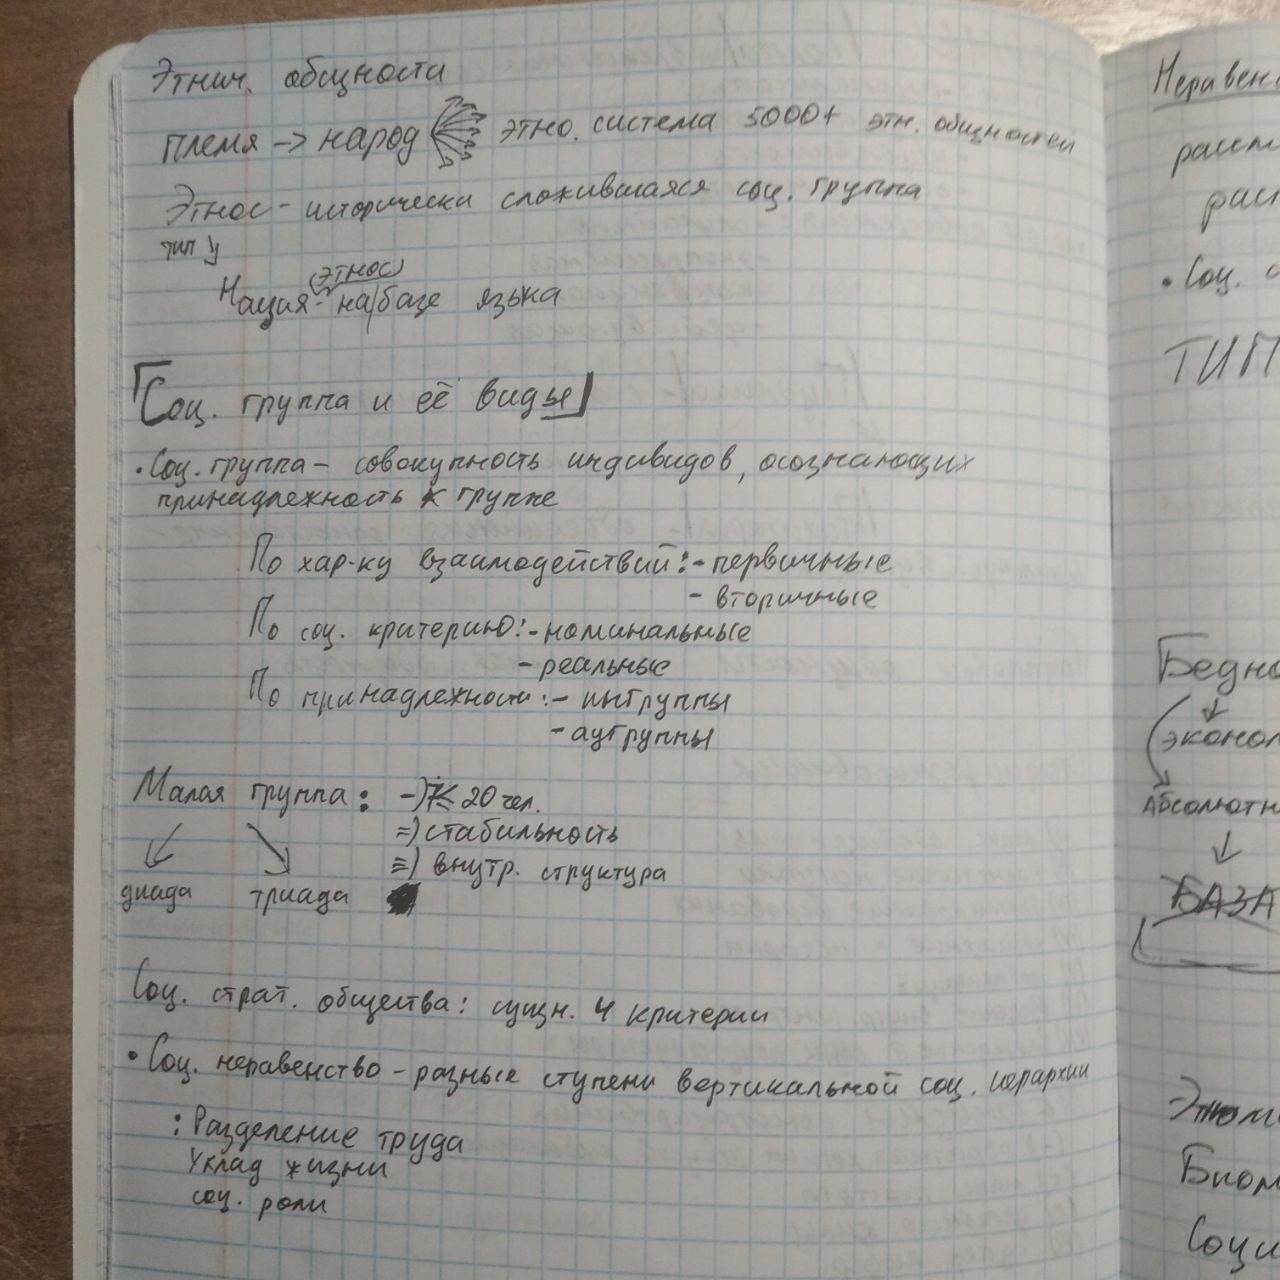 Этнич. общности
племя -> народ этно. система 5000+ этн. общностей
Этнос - исторически сложившаяся соц. группа
тип
(этнос)
Нация - на базе языка
Соц. группа и её виды
• Соц. группа - совокупность индивидов, осознающих
принадлежность к группе
По хар-ку взаимодействий: - первичные
- вторичные
По соц. критерию: - номинальные
- реальные
По принадлежности: - ингруппы
- аутгруппы
Малая группа: -) ≤ 20 чел.
=) стабильность
≡) внутр. структура
диада триада
Соц. страт. общества: сущн. 4 критерии
• Соц. неравенство - разные ступени вертикальной соц. иерархии
: Разделение труда
Уклад жизни
соц. роли
Неравен
расп
рас
• Соц.
ТИП
Бедно
эконом
Абсолютн
БАЗА
Этно
Биом
Соци